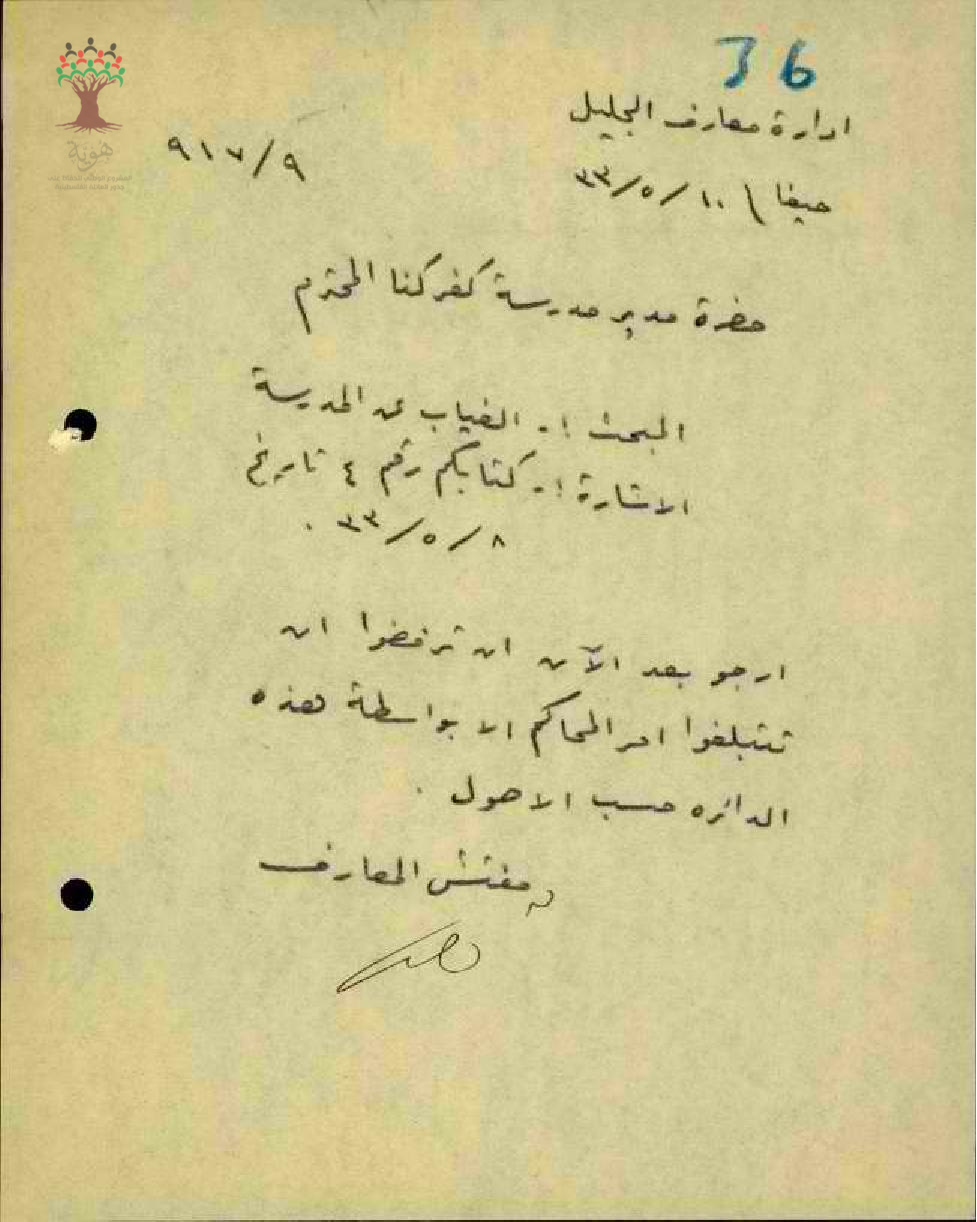 36
ادارة معارف الجليل
٩١٧/٩
حيفا \ ١٠/٥/٣٣
حضرة مدير مدرسة كفر كنا المحترم
البحث :- الغياب عن المدرسة
الاشارة :- كتابكم رقم ٤ تاريخ
٨/٥/٣٣ .
ارجو بعد الآن ان ترفضوا ان
تتبلغوا امر المحاكم الا بواسطة هذه
الدائره حسب الاصول .
مفتش المعارف
هوية